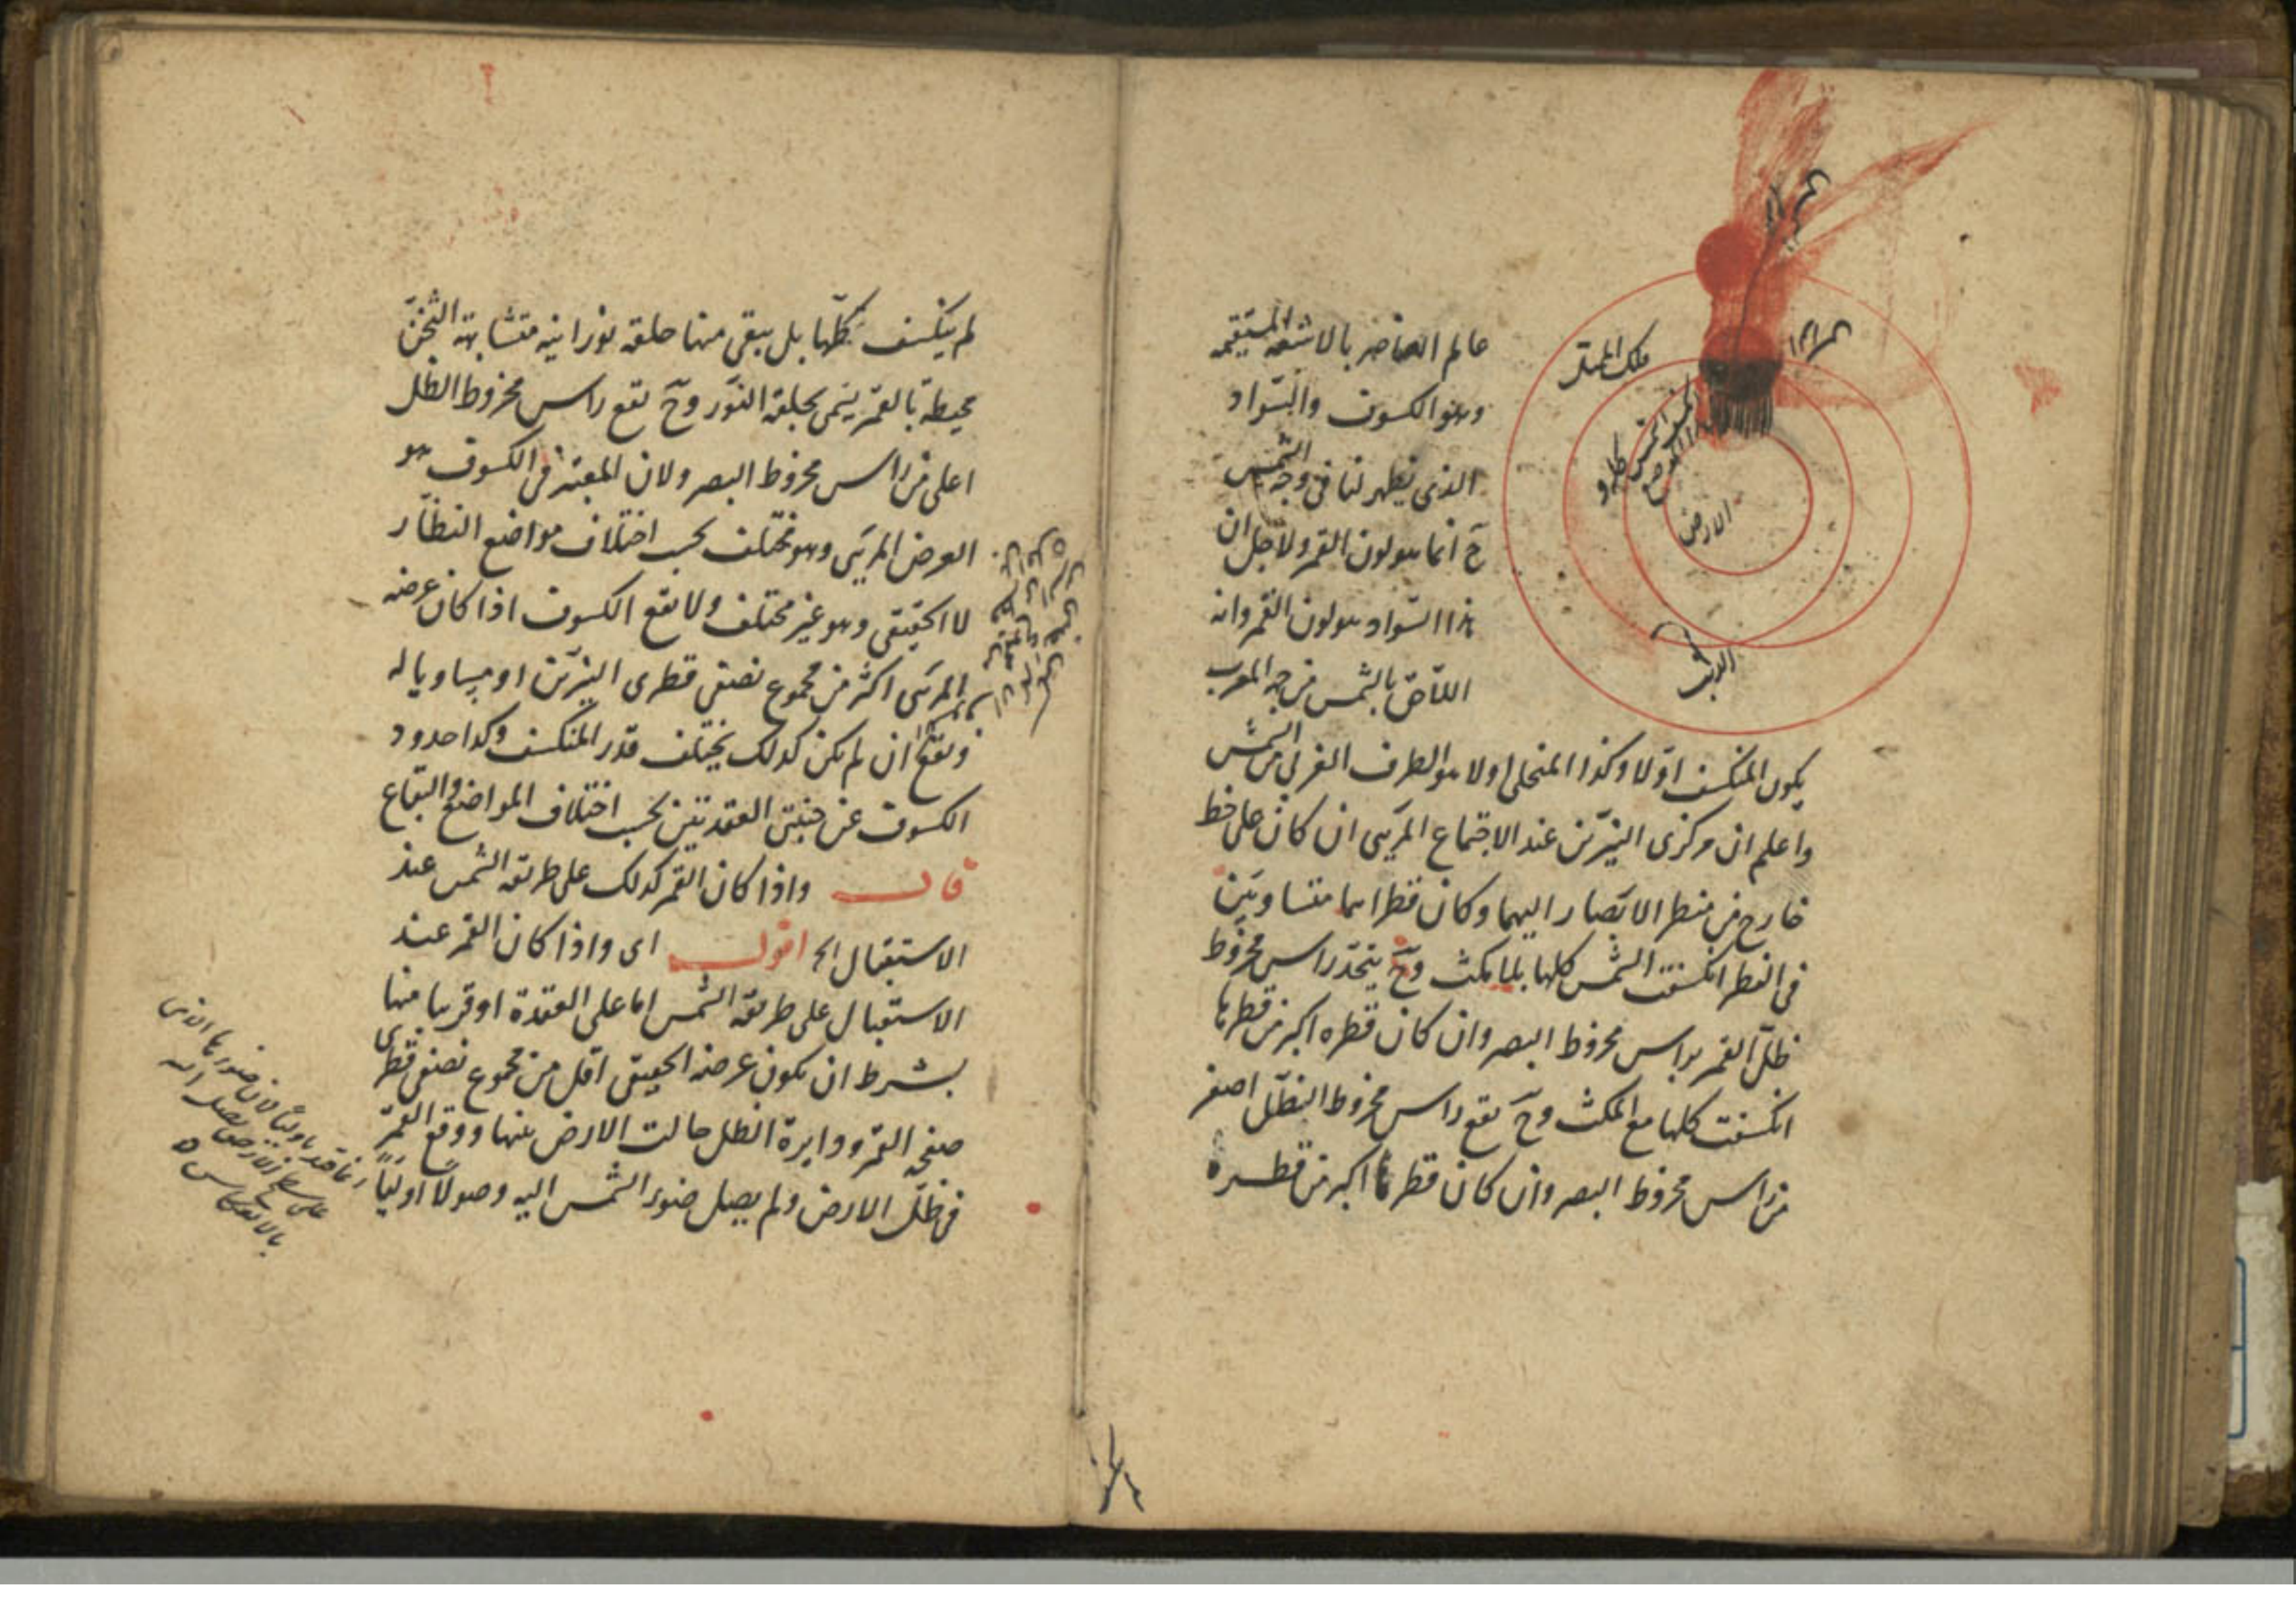 عالم العناصر بالاشعة المستقيمة
وهو الكسوف والسّواد
الذى يظهر لنا فى وجه الشمس
حٓ انما هو لون القمر ولاجل ان
هذا السّواد هو لون القمر وانه
اللّاحق بالشمس من جهة المغرب
يكون المنكسف اوّلا وكذا المنجلى اولا هو الطرف الغربى من الشمس
واعلم ان مركزى النيّرين عند الاجتماع المرئى ان كان على خط
خارج من منظر الابصار اليهما وكان قطراهما متساويين
فى النظر انكسفت الشمس كلها بلا مكث وحٓ يتحد راس مخروط
ظلّ القمر براس مخروط البصر وان كان قطره اكبر من قطرها
انكسفت كلها مع المكث وحٓ يقع راس مخروط الظّل اصغر
من راس مخروط البصر وان كان قطرها اكبر من قطره
فلك الممثل
الارض
لم ينكسف كلّها بل يبقى منها حلقة نورانية متشابهة الثخن
محيطة بالقمر يسمى بحلقة النّور وحٓ تقع راس مخروط الظل
اعلى من راس مخروط البصر ولان المعتبر فى الكسوف هو
العرض المرئى وهو مختلف بحسب اختلاف مواضع النظّار
لا الحقيقى وهو غير مختلف ولا يقع الكسوف اذا كان عرضه
المرئى اكثر من مجموع نصفى قطرى النيّرين او مساويا له
ويقع ان لم يكن كذلك يختلف قدر المنكسف وكذا حدود
الكسوف عن جنبتى العقدتين بحسب اختلاف المواضع والبقاع
قال واذا كان القمر كذلك على طريقة الشمس عند
الاستقبال الخ اقول اى واذا كان القمر عند
الاستقبال على طريقة الشمس اما على العقدة او قريبا منها
بشرط ان يكون عرضه الحقيقى اقل من مجموع نصفى قطرى
صفحة القمر ودايرة الظل حالت الارض بينهما ووقع القمر
فى ظلّ الارض ولم يصل ضوء الشمس اليه وصولًا اوليًا